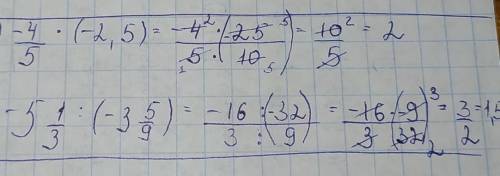 ) -4/5 · (-2,5) = -4² · (-25⁵) / ₁5 · (10₅) = 10²/5 = 2
-5 1/3 : (-3 5/9) = -16 : (-32) / 3 : (9) = -16 · (-9)³ / 3 (32)₂ = 3/2 = 1,5